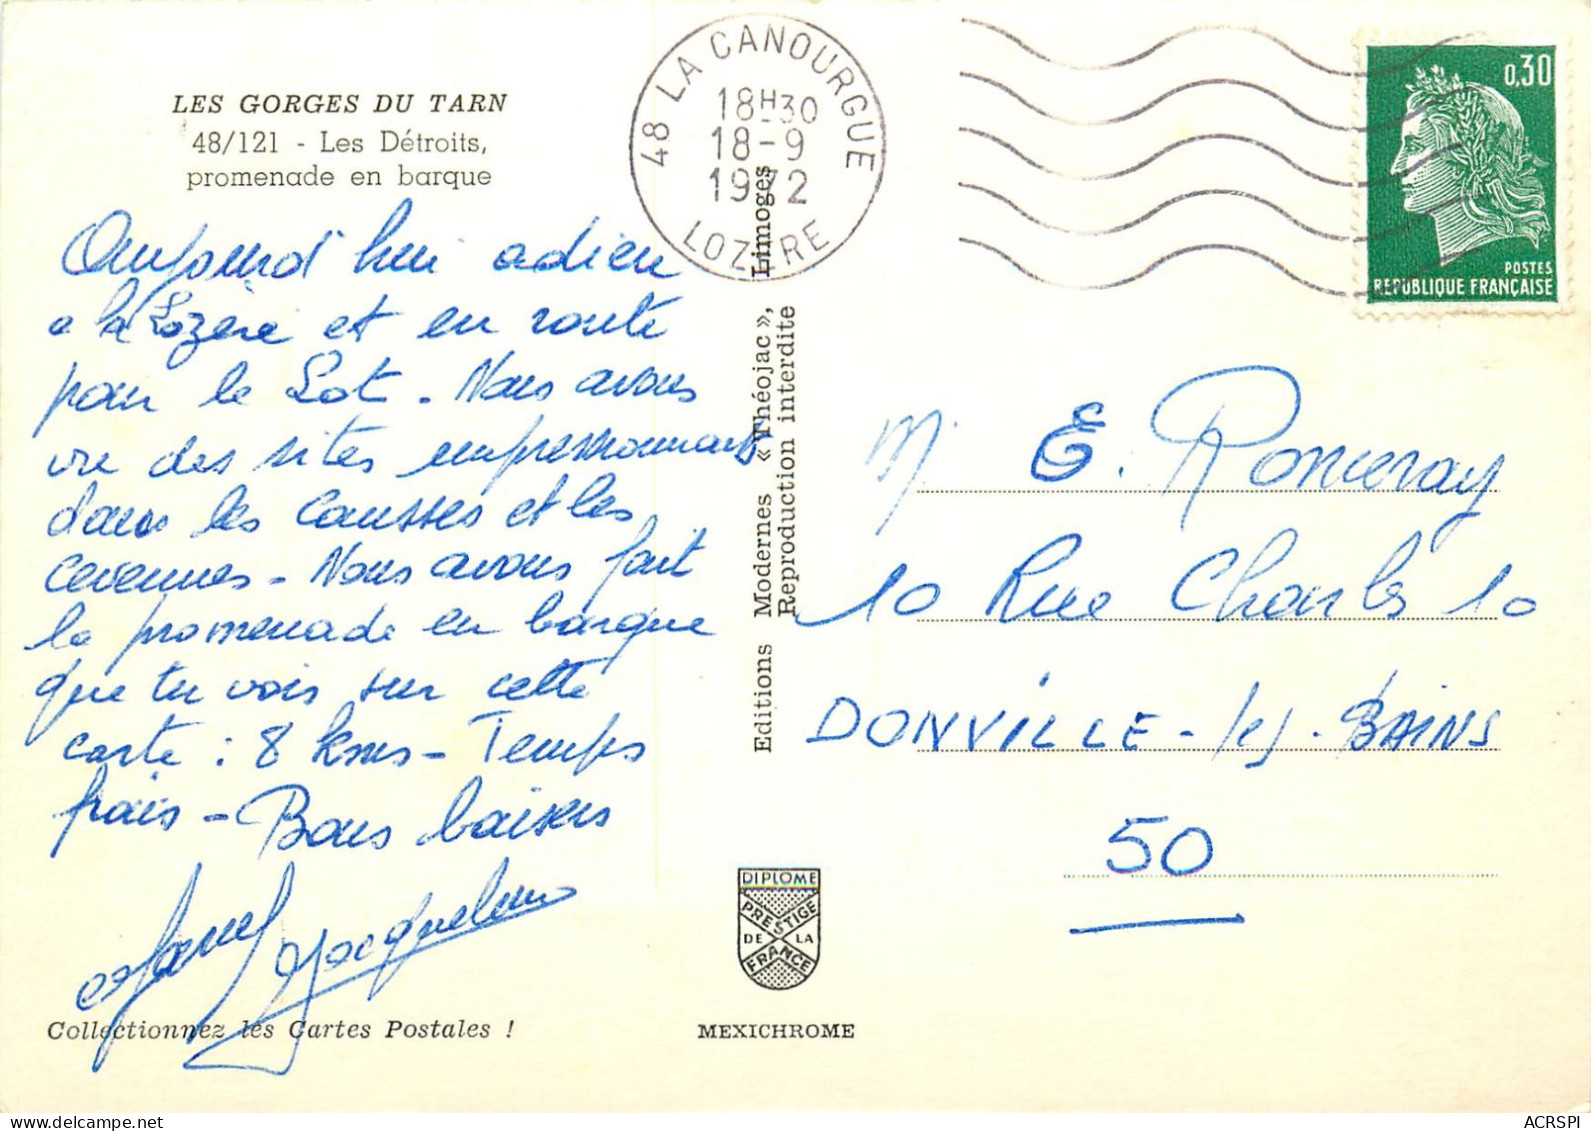 LES GORGES DU TARN
48/121 - Les Détroits,
promenade en barque
Aujourd'hui adieu
a la Lozère et en route
pour le Lot. Nous avons
vu des sites impressionnants
dans les Causses et les
Cevennes - Nous avons fait
la promenade en barque
que tu vois sur cette
carte : 8 kms - Temps
frais - Bons baisers
Jacqueline
Collectionnez les Cartes Postales !
48 LA CANOURGUE
18H30
18-9
1972
LOZERE
Editions Modernes « Théojac », Limoges
Reproduction interdite
DIPLOME
PRESTIGE
DE LA
FRANCE
MEXICHROME
0,30
POSTES
REPUBLIQUE FRANÇAISE
M. E. Ronceray
10 Rue Charles 10
DONVILLE-les-BAINS
50
ACRSPI